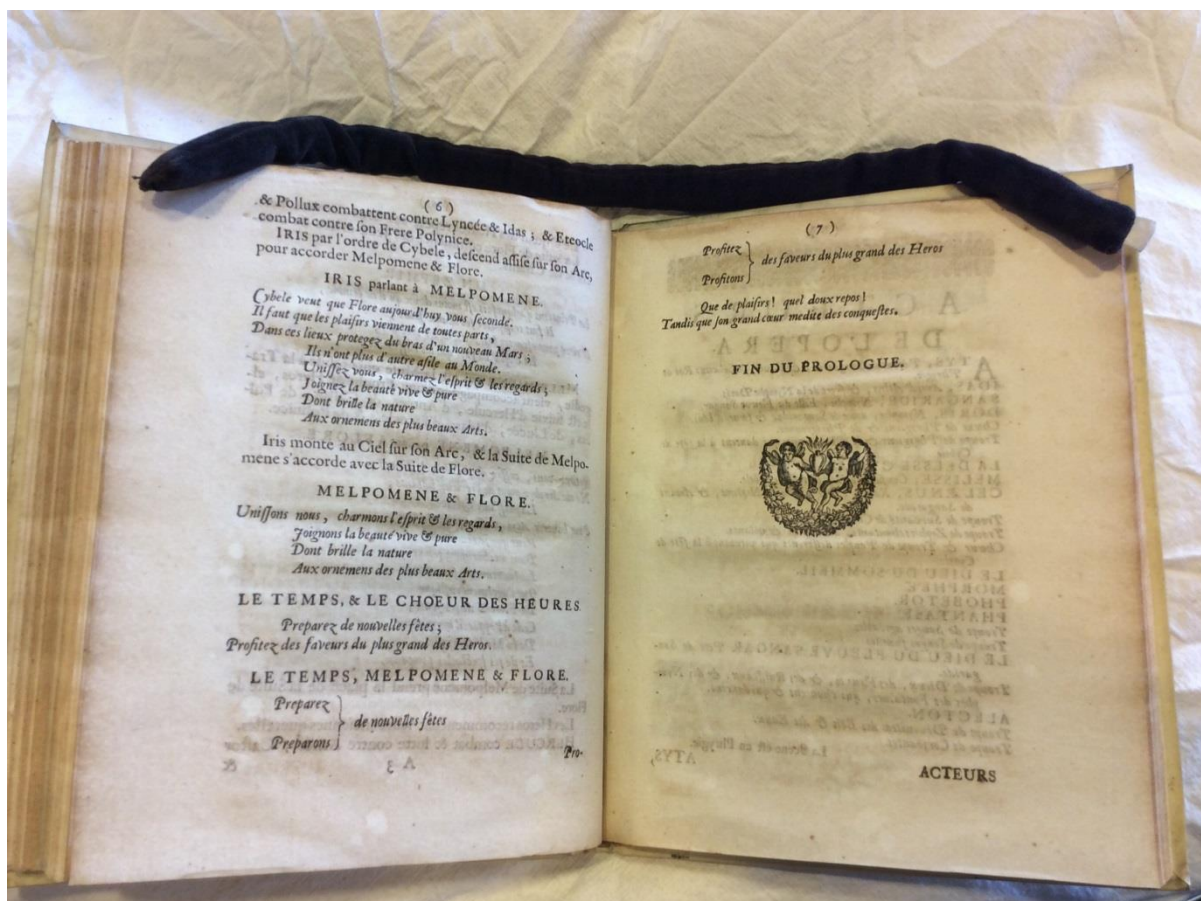 (6)
& Pollux combattent contre Lyncée & Idas ; & Eteocle
combat contre ſon Frere Polynice.
IRIS par l'ordre de Cybele, deſcend aſſiſe ſur ſon Arc,
pour accorder Melpomene & Flore.
IRIS parlant à MELPOMENE.
Cybele veut que Flore aujourd'huy vous ſeconde.
Il faut que les plaiſirs viennent de toutes parts,
Dans ces lieux protegez du bras d'un nouveau Mars ;
Ils n'ont plus d'autre aſile au Monde.
Uniſſez vous, charmez l'eſprit & les regards ;
Joignez la beauté vive & pure
Dont brille la nature
Aux ornemens des plus beaux Arts.
Iris monte au Ciel ſur ſon Arc, & la Suite de Melpo-
mene s'accorde avec la Suite de Flore.
MELPOMENE & FLORE.
Uniſſons nous, charmons l'eſprit & les regards,
Joignons la beauté vive & pure
Dont brille la nature
Aux ornemens des plus beaux Arts.
LE TEMPS, & LE CHOEUR DES HEURES.
Preparez de nouvelles fêtes ;
Profitez des faveurs du plus grand des Heros.
LE TEMPS, MELPOMENE & FLORE.
Preparez
de nouvelles fêtes
Preparons
Pro-
(7)
Profitez
des faveurs du plus grand des Heros
Profitons
Que de plaiſirs ! quel doux repos !
Tandis que ſon grand cœur medite des conqueſtes.
FIN DU PROLOGUE.
ACTEURS